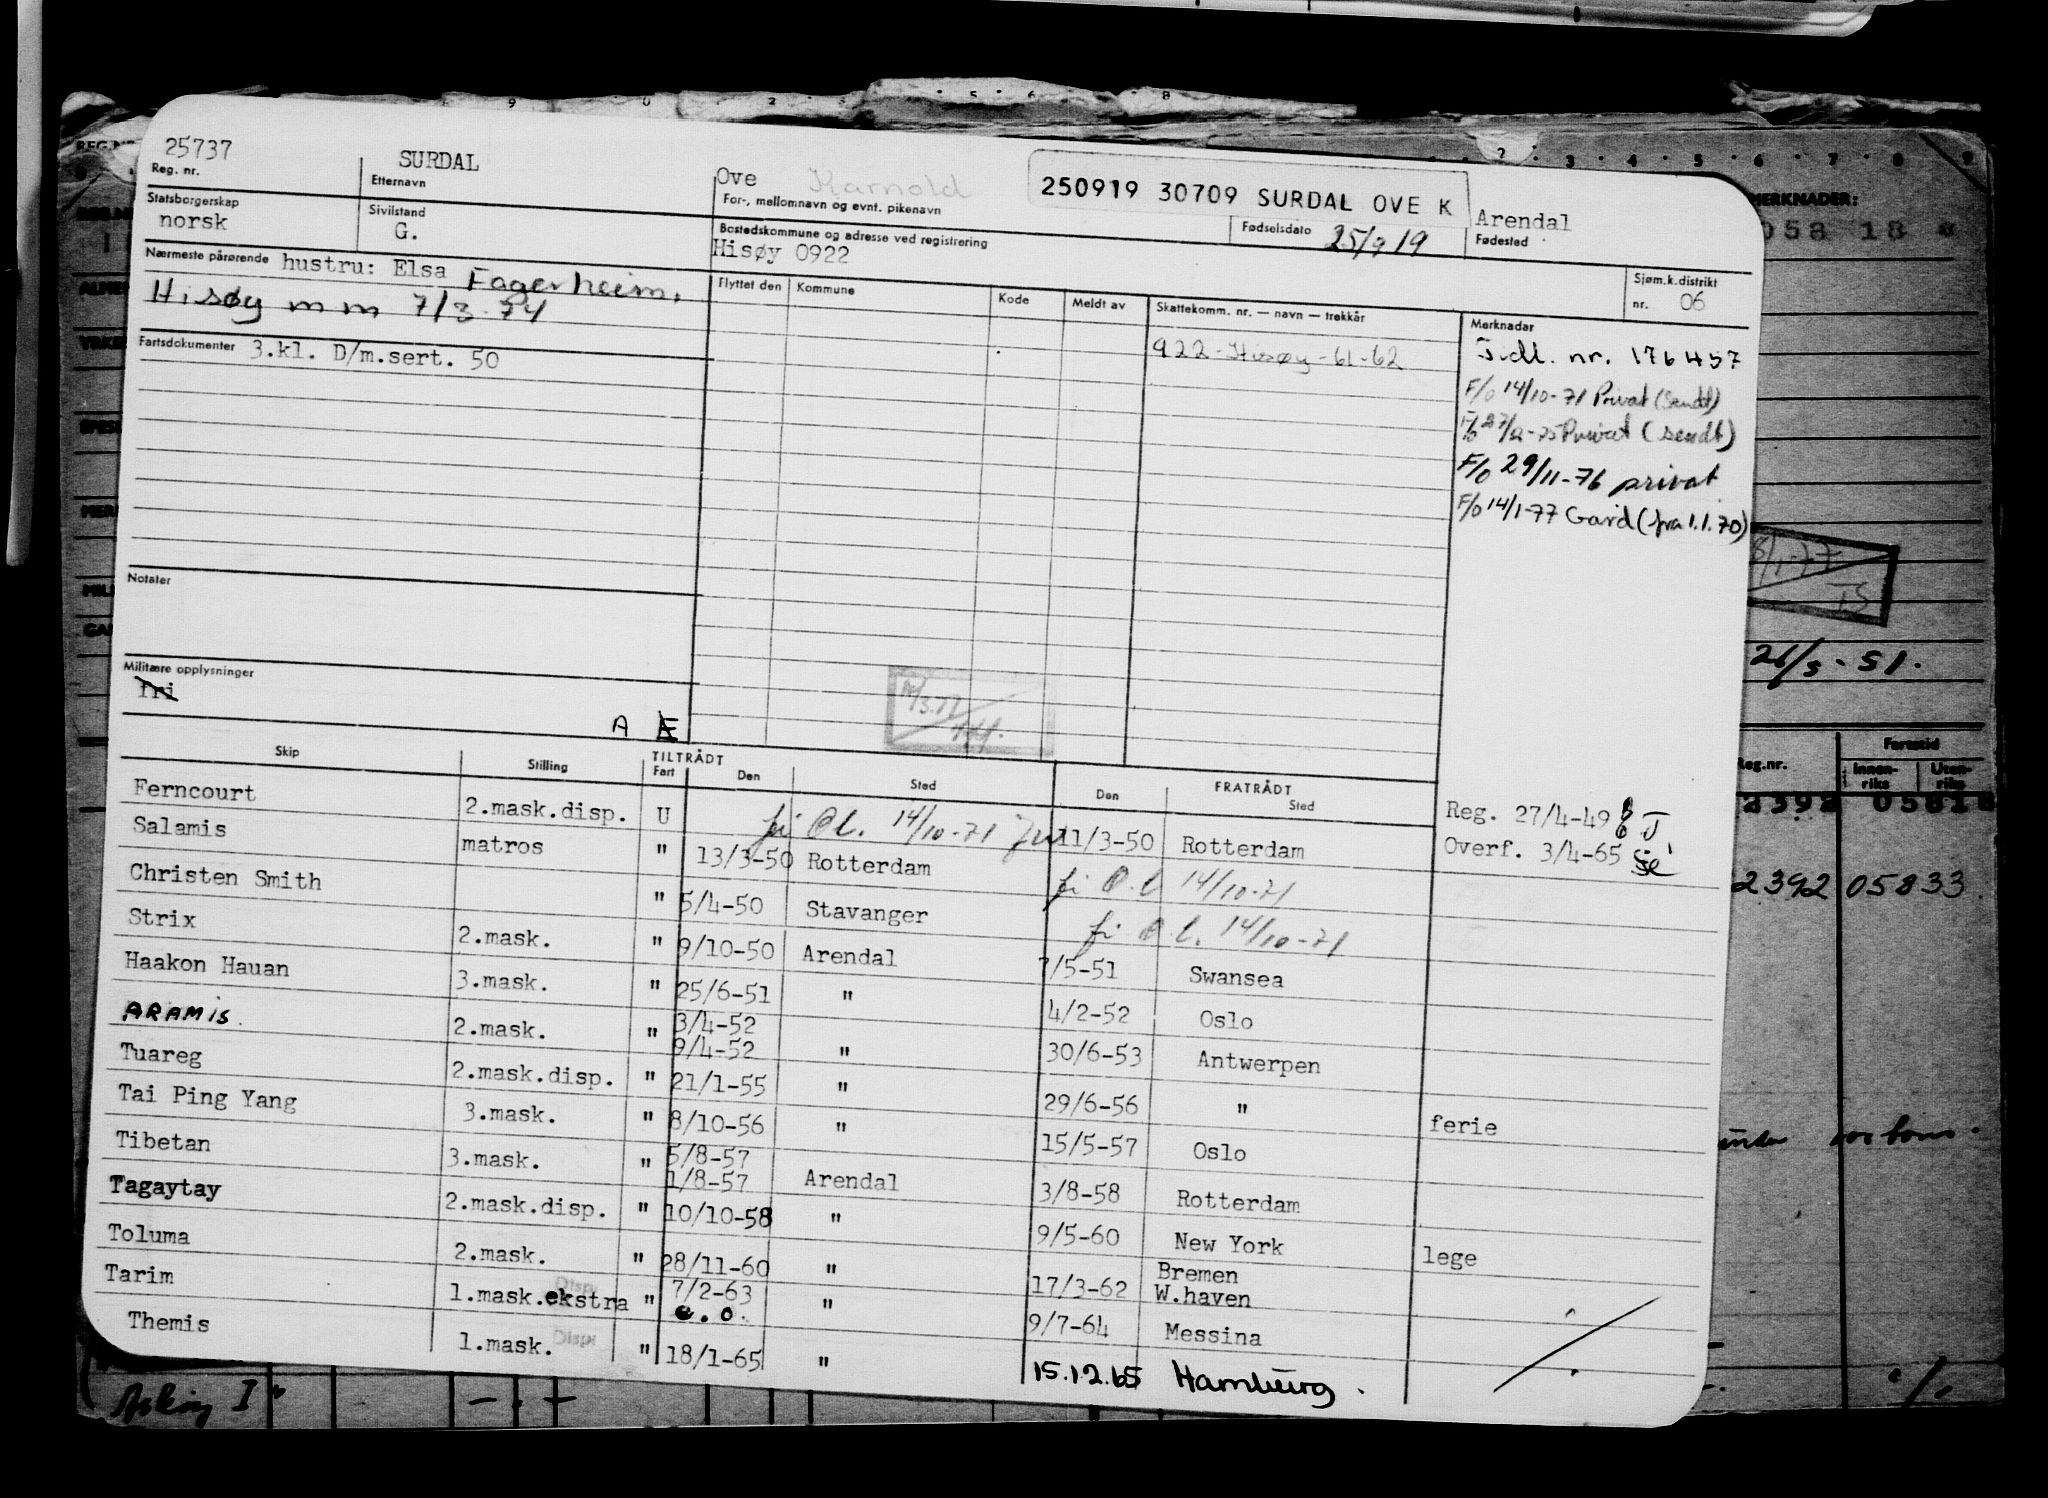 25737
Reg. nr.
SURDAL
Etternavn
Ove Karnold
For-, mellomnavn og evnt. pikenavn
250919 30709 SURDAL OVE K
Fødselsdato 25/9 19
Arendal
Fødested
Statsborgerskap
norsk
Sivilstand
G.
Bostedskommune og adresse ved registrering
Hisøy 0922
Nærmeste pårørende hustru: Elsa Fagerheim,
Hisøy m m 7/3-74
Sjøm.k.distrikt
nr. 06
Flyttet den Kommune Kode Meldt av Skattekomm. nr. — navn — trekkår
922-Hisøy-61-62
Fartsdokumenter 3.kl. D/m.sert. 50
Merknader
Tidl. nr. 176457
F/o 14/10-71 Privat (sendt)
Privat (sendt)
F/o 29/11-76 privat
F/o 14/1-77 Gard (fra 1.1.70)
Notater
Militære opplysninger
fri
A Æ
Skip Stilling TILTRÅDT Fart Den Sted FRATRÅDT Den Sted
Ferncourt 2.mask.disp. U 11/3-50 Rotterdam Reg. 27/4-49
14/10-71
Salamis matros " 13/3-50 Rotterdam Overf. 3/4-65
14/10-71
Christen Smith " 5/4-50 Stavanger
14/10-71
Strix 2.mask. " 9/10-50 Arendal 7/5-51 Swansea
Haakon Hauan 3.mask. " 25/6-51 " 4/2-52 Oslo
ARAMIS. 2.mask. " 3/4-52 9/4-52 " 30/6-53 Antwerpen
Tuareg 2.mask.disp. " 21/1-55 " 29/6-56 " ferie
Tai Ping Yang 3.mask. " 8/10-56 " 15/5-57 Oslo
Tibetan 3.mask. " 5/8-57 1/8-57 Arendal 3/8-58 Rotterdam
Tagaytay 2.mask.disp. " 10/10-58 " 9/5-60 New York lege
Toluma 2.mask. " 28/11-60 " 17/3-62 Bremen W.haven
Tarim 1.mask.ekstra " 7/2-63 e.o. " 9/7-64 Messina
Themis 1.mask. Disp " 18/1-65 " 15.12.65 Hamburg.
MERKNADER:
058 18
8/1-77
26/5-51.
Reg.nr.
Fartstid
Innen-
riks
Uten-
riks
2392 05818
2392 05833